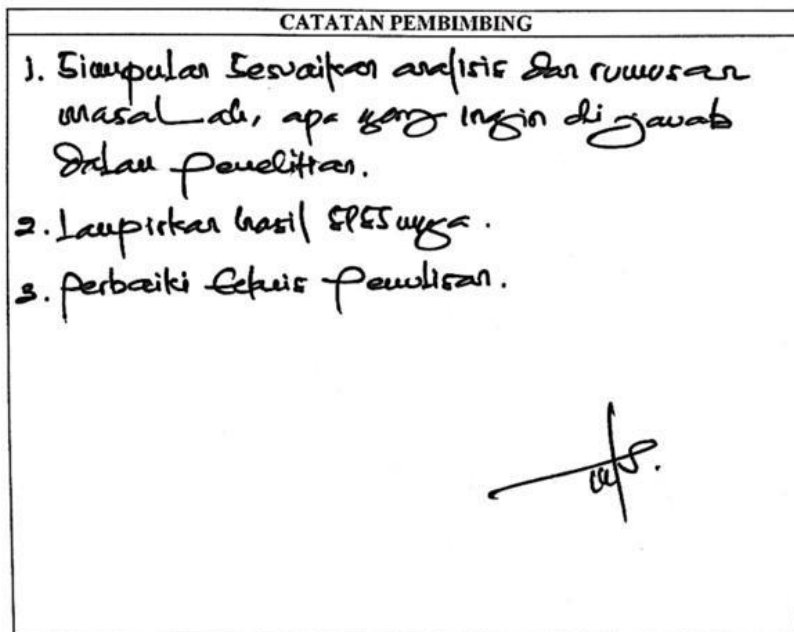 CATATAN PEMBIMBING
1. Simpulan Sesuaikan analisis dan rumusan
masalah, apa yang ingin di jawab
dalam penelitian.
2. Lampirkan hasil SPSSnya.
3. Perbaiki teknis penulisan.